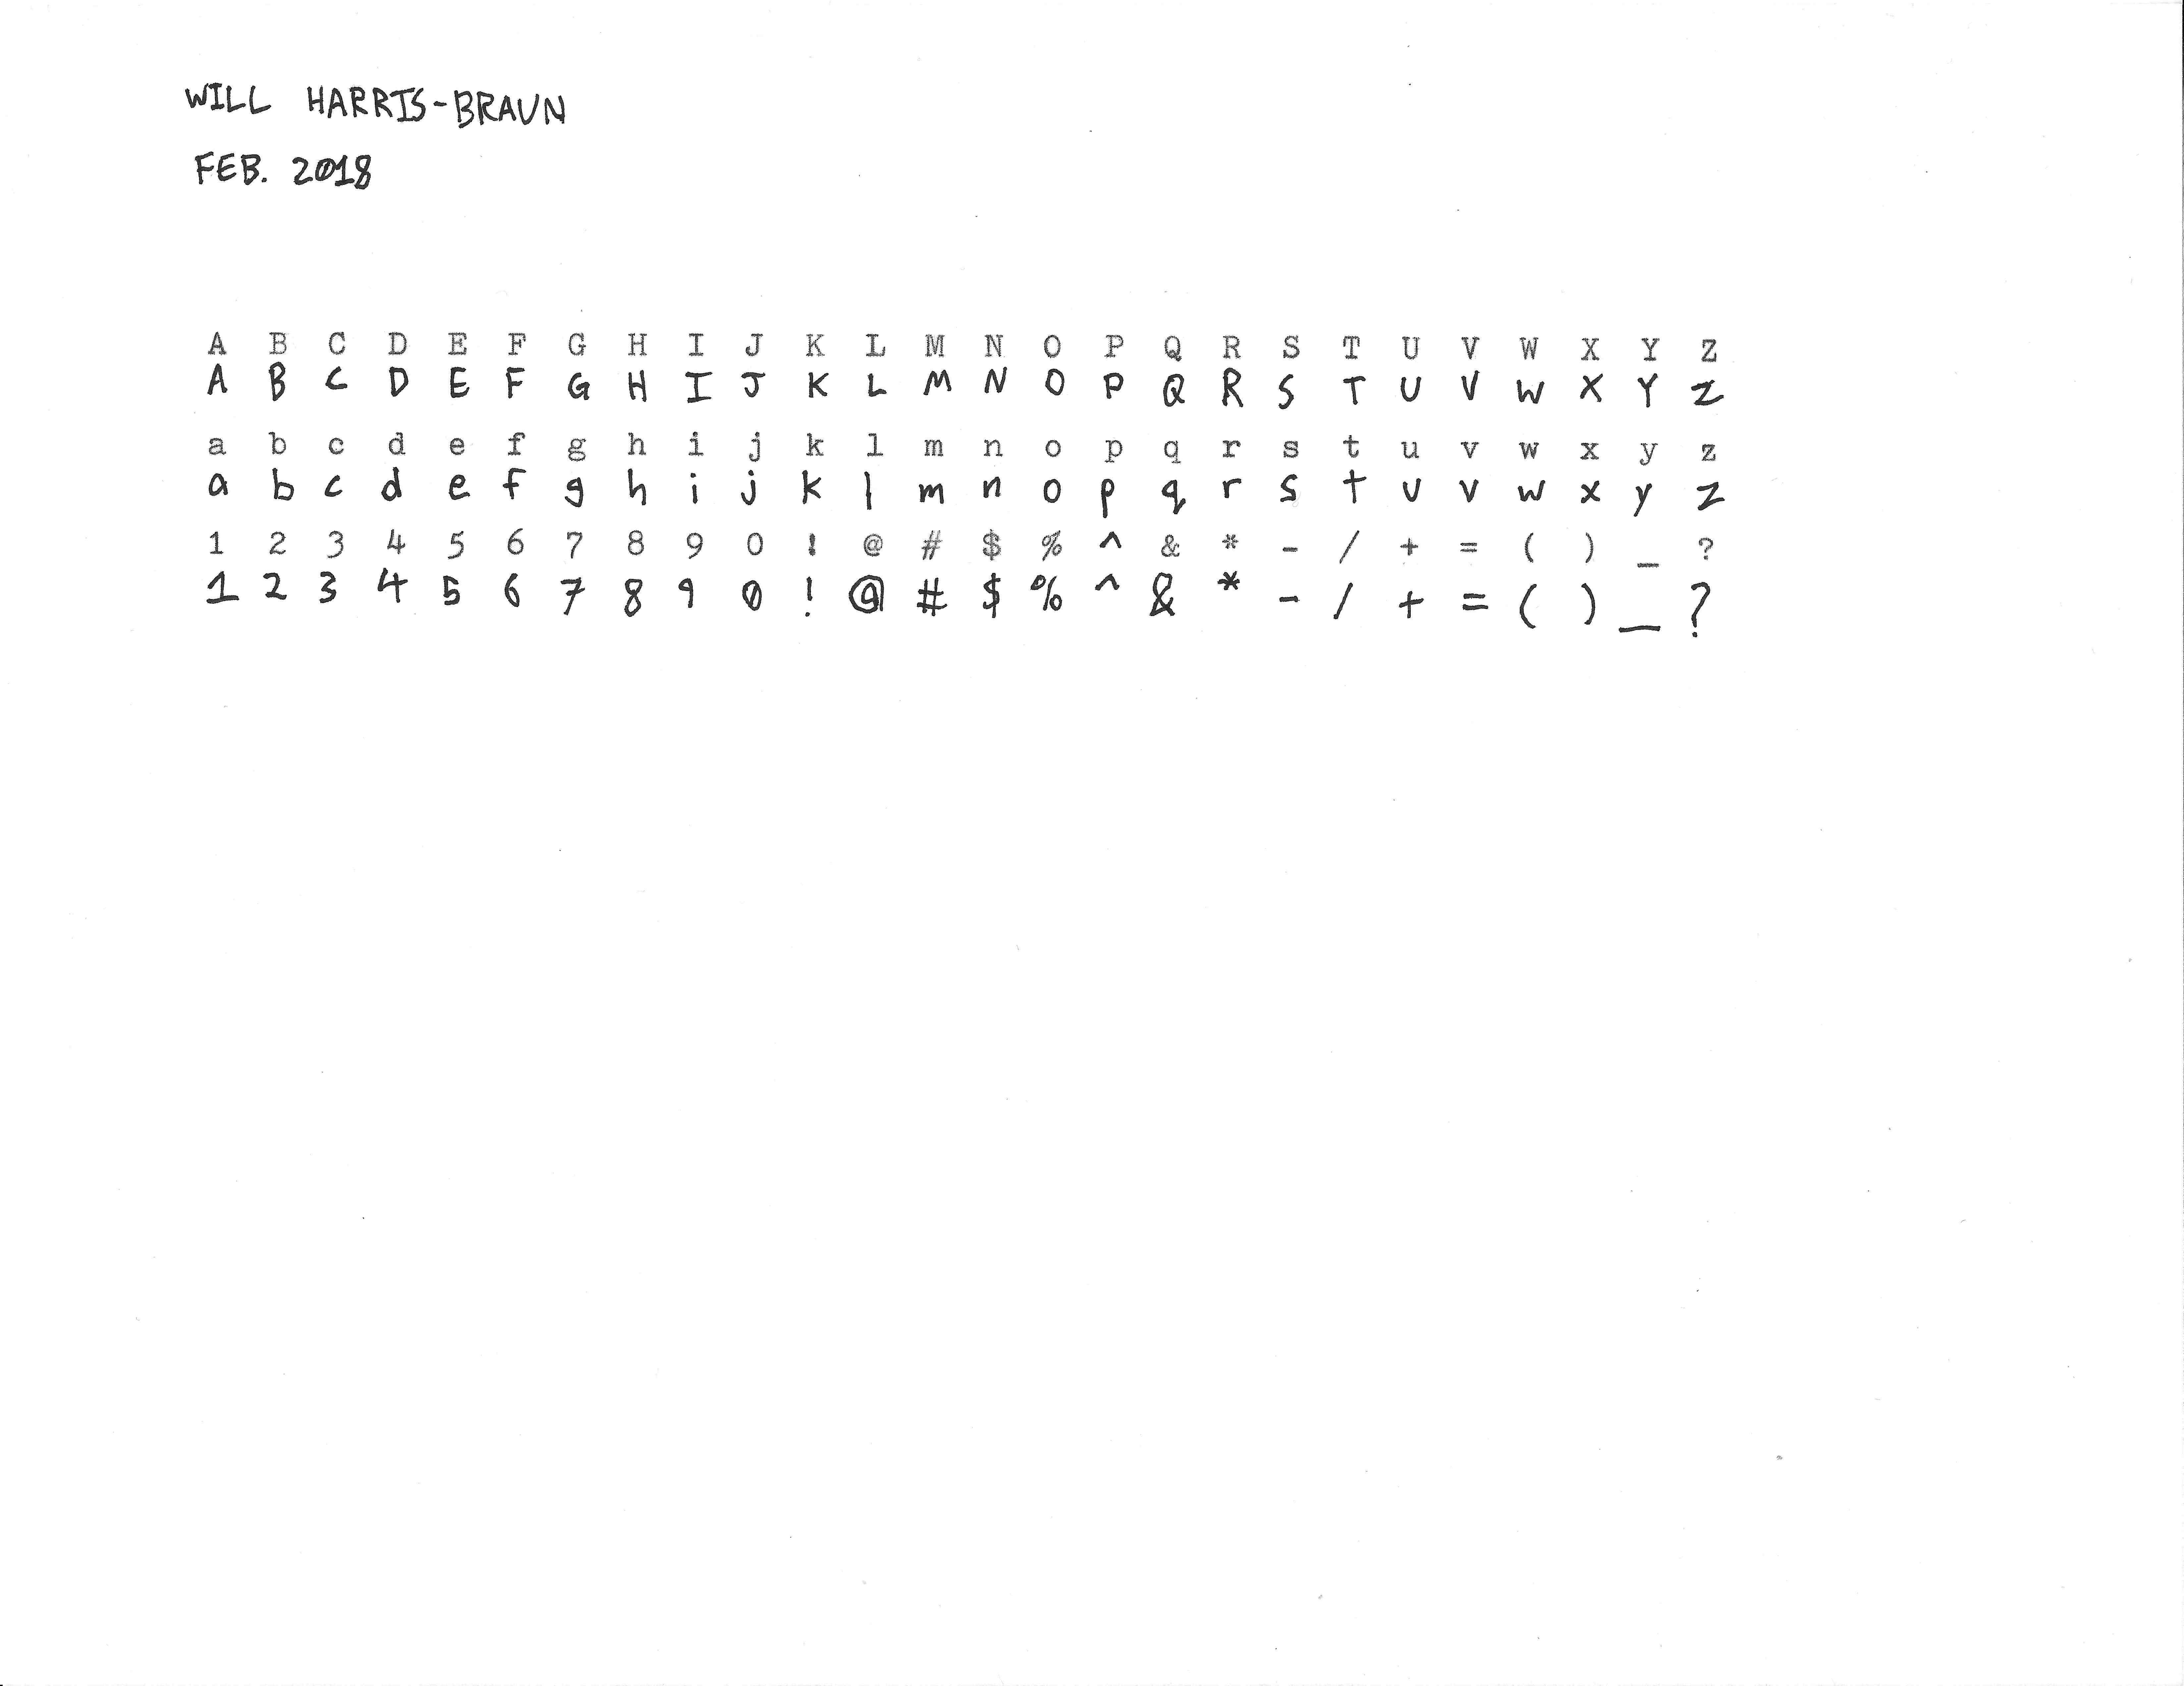 WILL HARRIS-BRAUN
FEB. 2018
A B C D E F G H I J K L M N O P Q R S T U V W X Y Z
A B C D E F G H I J K L M N O P Q R S T U V W X Y Z
a b c d e f g h i j k l m n o p q r s t u v w x y z
a b c d e f g h i j k l m n o p q r s t u v w x y z
1 2 3 4 5 6 7 8 9 0 ! @ # $ % ^ & * - / + = ( ) _ ?
1 2 3 4 5 6 7 8 9 0 ! @ # $ % ^ & * - / + = ( ) _ ?